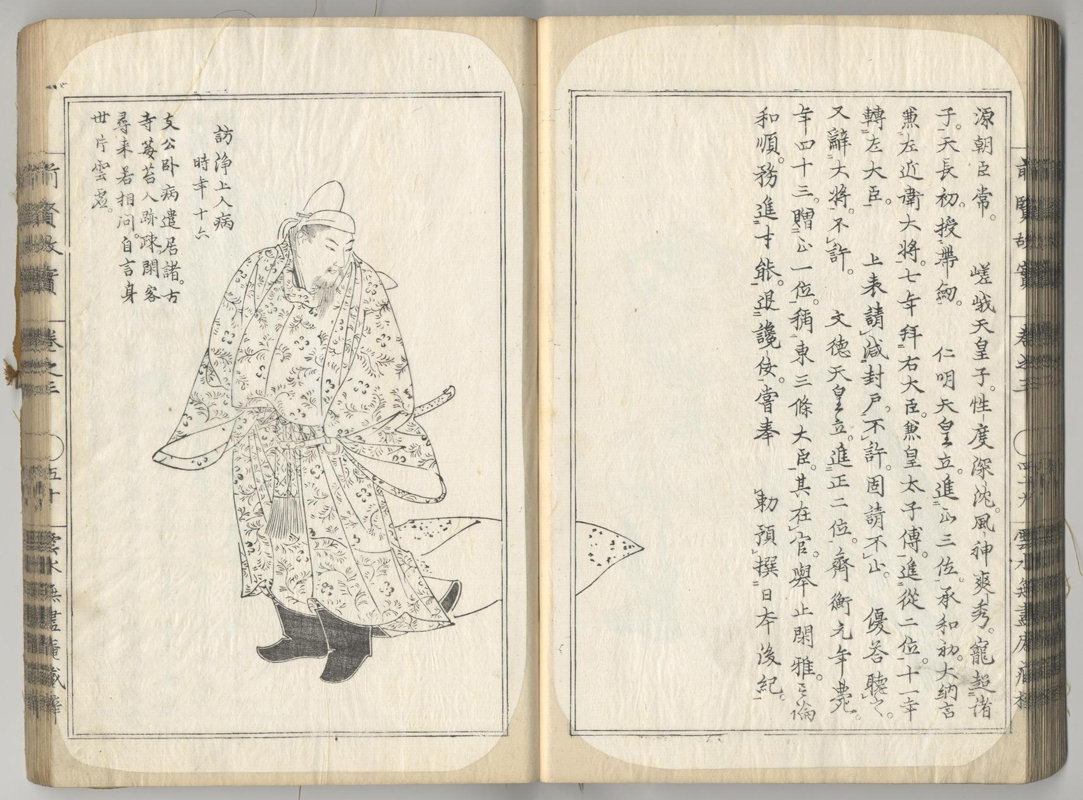 前賢故實 卷之三 〇四十九 雲水無盡庵藏梓
源朝臣常。 嵯峨天皇子。性度深沈。風神爽秀。寵超諸
子。天長初。授帶劔。 仁明天皇立。進正三位。承和初。大納言
兼左近衛大將。七年拜右大臣。兼皇太子傅。進從二位。十一年
轉左大臣。 上表請減封戸。不許。固請不止。 優答聽之。
又辭大將。不許。 文德天皇立。進正二位。齊衡元年薨。
年四十三。贈正一位。稱東三條大臣。其在官。舉止閑雅。言論
和順。務進才能。退讒佞。嘗奉 勅預撰日本後紀。
訪淨上人病
時年十六
支公卧病遣居諸。古
寺莓苔人跡疎。閑客
尋來若相問。自言身
世片雲虚。
前賢故實 卷之三 〇五十 雲水無盡庵藏梓